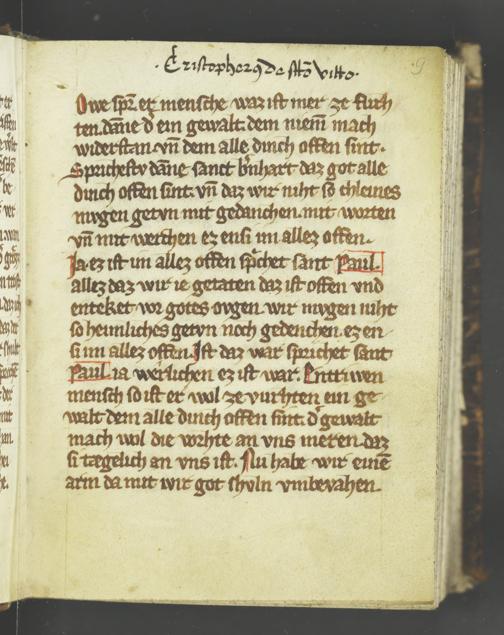 · Cristopherꝯ de sc̄to Vitto ·
9
Owe spr̄. er mensche waz ist mer ze furh
ten. dāne d̕ ein gewalt. dem niem̄ mach
widerstan. vn̄ dem alle dinch offen sint.
Sprichestv dāne sanct b̕nhart daz got alle
dinch offen sint. vn̄ daz wir niht so chleines
mvgen getvn mit gedanchen. mit worten
vn̄ mit werchen ez ensi im allez offen.
Ja ez ist im allez offen sp̄chet sant Paul.
allez daz wir ie getaten daz ist offen vnd
entēket vor gotes ovgen. wir mvgen niht
so heimliches getvn noch gedenchen. ez en
si im allez offen. Ist daz war sprichet sant
Paul ia werlichen ez ist war. Entriwen
mensch so ist er wol ze vurhten ein ge
walt dem alle dinch offen sint. d̕ gewalt
mach wol die vorhte an vns meren. daz
si tægelich an vns ist. Nu habe wir einē
arm da mit wir got shvln vmbevahen.